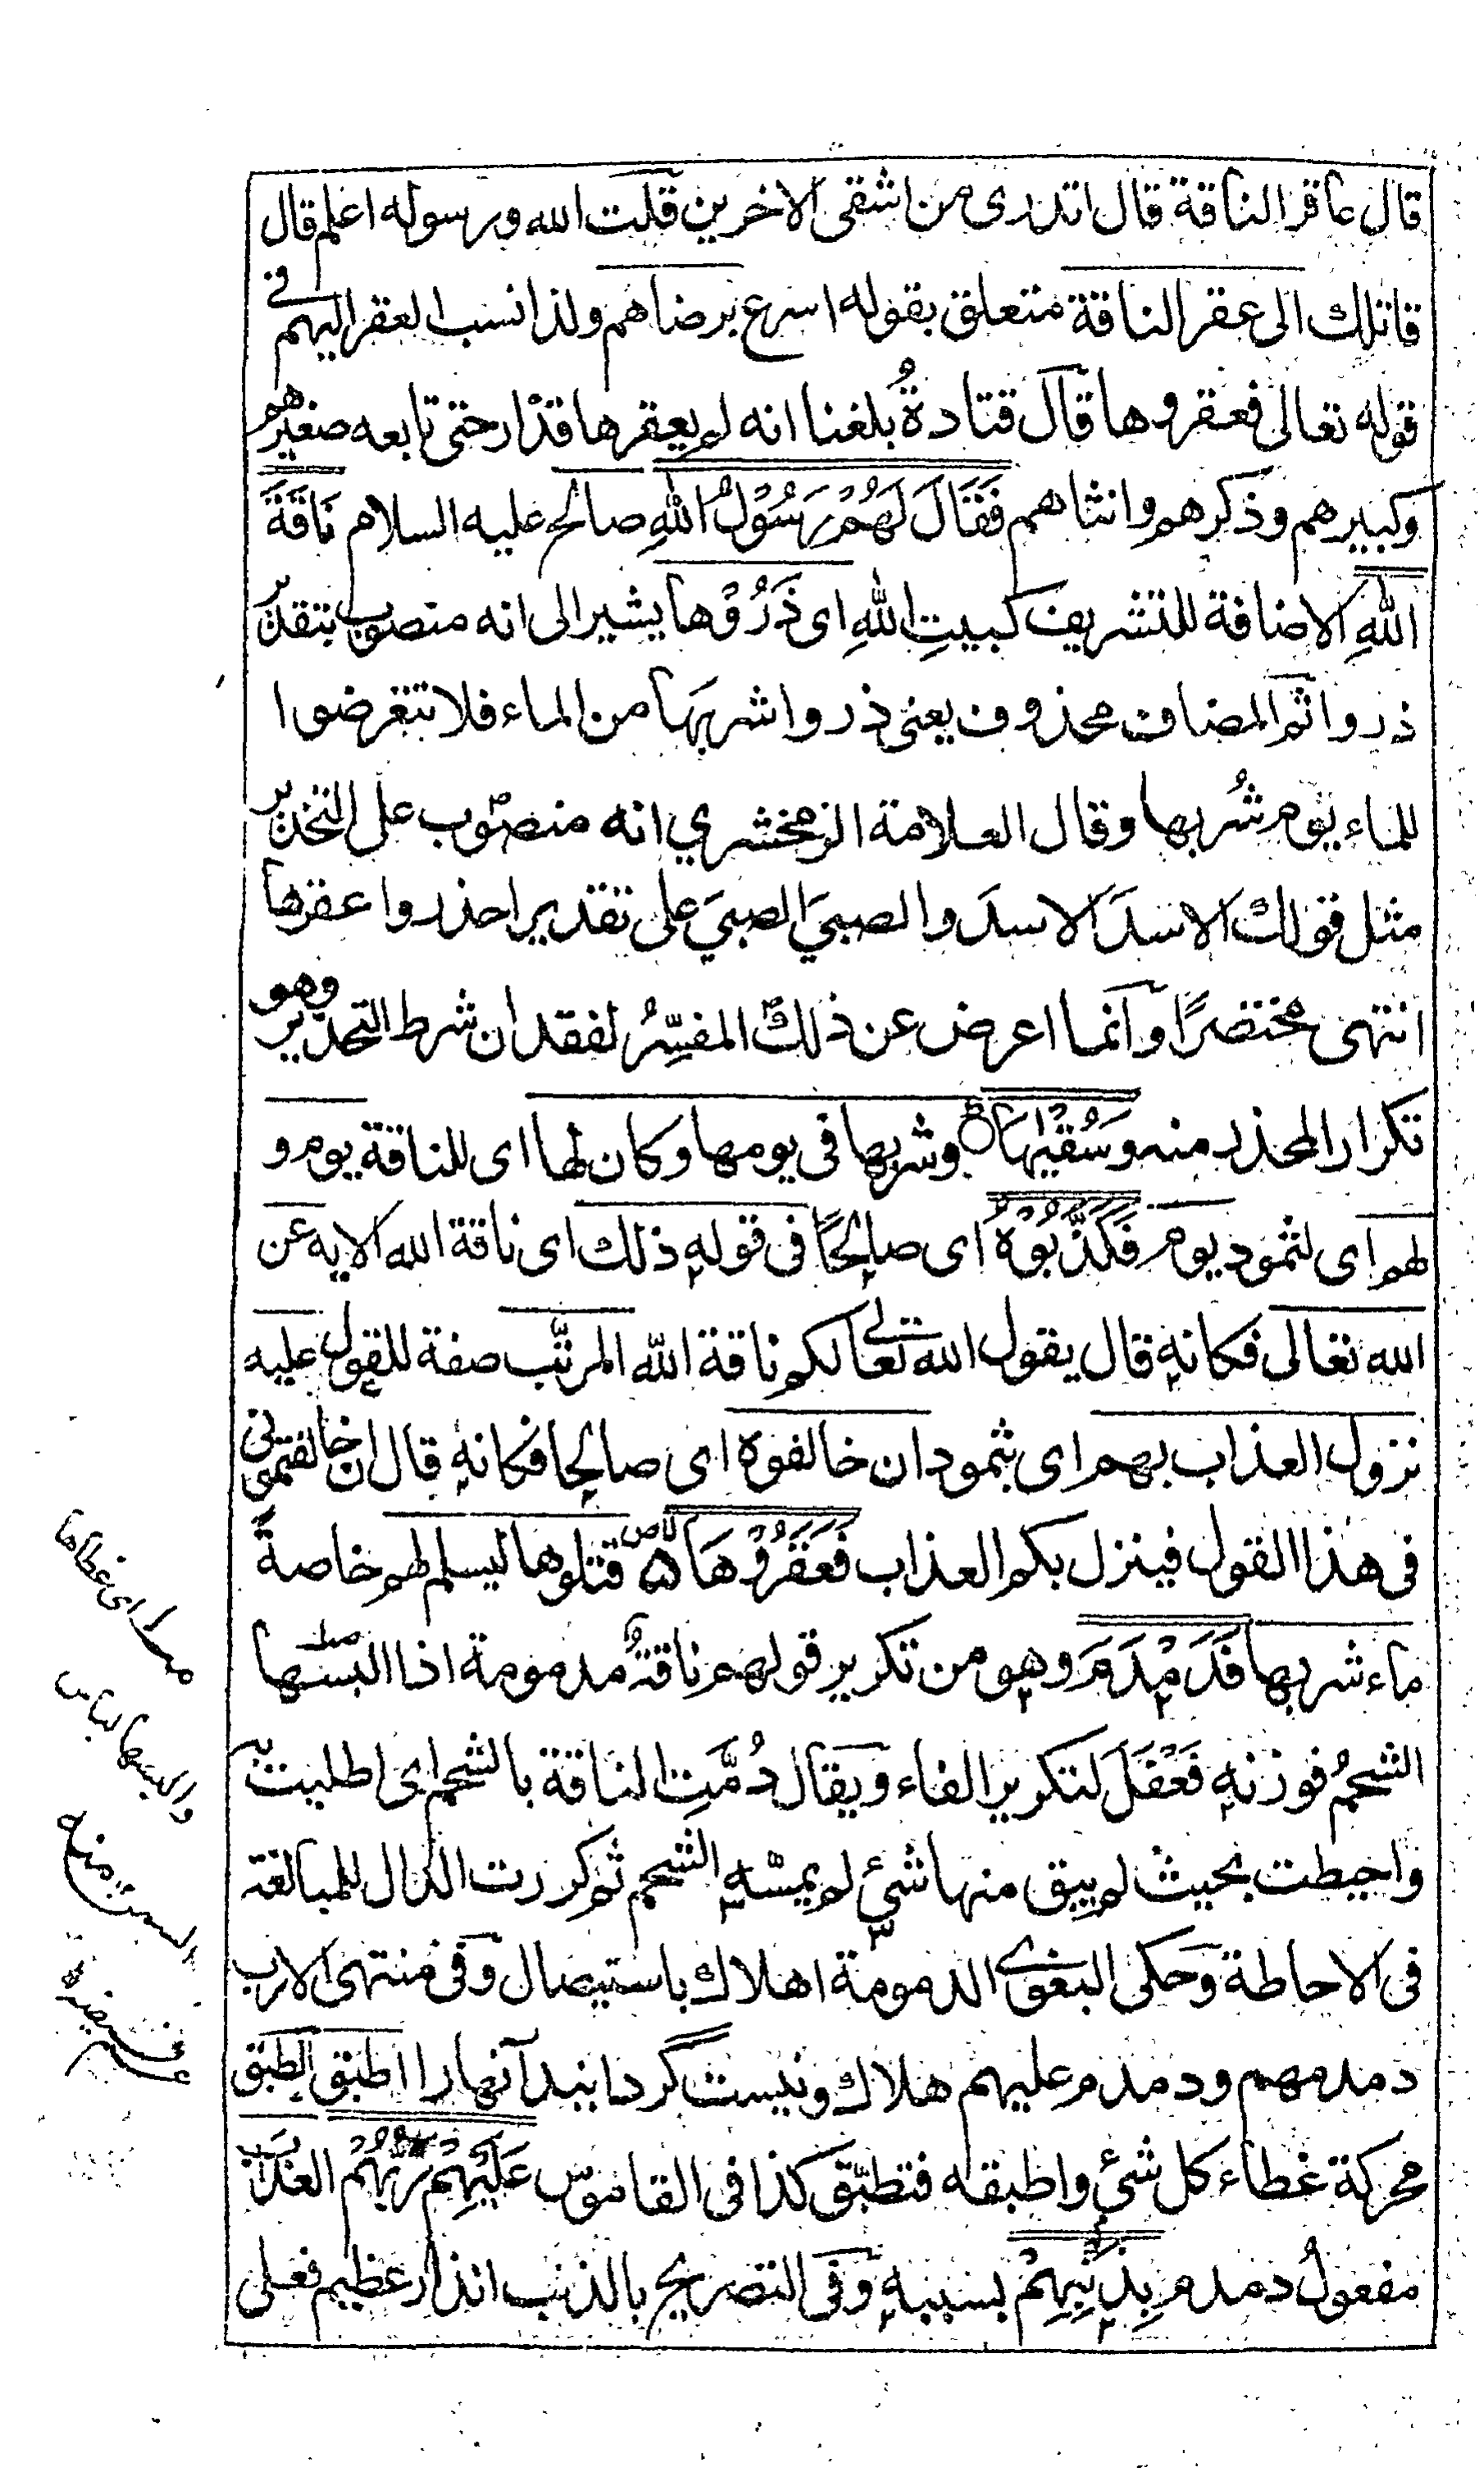 قال عاقر الناقة قال اتدرى من اشقى الاخرين قلت الله ورسوله اعلم قال
قاتلك الى عقر الناقة متعلق بقوله اسرع برضاهم ولذا نسب العقر اليهم فى
قوله تعالى فعقروها قال قتادةُ بلغنا انه لم يعقرها قدار حتى تابعه صغيرهم
وكبيرهم وذكرهم وانثاهم فَقَالَ لَهُمْ رَسُوْلُ اللهِ صالح عليه السلام نَاقَةَ
اللهِ الاضافة للتشريف كبيتِ اللهِ اى ذَرُوْها يشير الى انه منصوب بتقدير
ذروا ثم المضاف محذوف يعنى ذروا شربَها من الماء فلا تتعرضوا
للماء يوم شُربها وقال العلامة الزمخشري انه منصوب على التحذير
مثل قولك الاسدَ الاسدَ والصبيَ الصبيَ على تقدير احذروا عقرَها
انتهى مختصرًا وانما اعرض عن ذلك المفسِّرُ لفقدان شرط التحذير وهو
تكرار المحذر منه وَسُقْيٰهَا وشربها فى يومها وكان لها اى للناقة يوم و
لهم اى لثمود يوم فَكَذَّبُوْهُ اى صالحًا فى قوله ذلك اى ناقة الله الاية عن
الله تعالى فكانه قال يقول الله تعالى لكم ناقة اللّه المرتَّب صفة للقول عليه
نزول العذاب بهم اى بثمود ان خالفوه اى صالحا فكانه قال ان خالفتمونى
فى هذا القول فينزل بكم العذاب فَعَقَرُوْهَا قتلوها ليسلم لهم خاصةً
ماء شربها فَدَمْدَمَ وهو من تكرير قولهم ناقةٌ مدمومة اذا البسها
الشحمُ فوزنه فَعْفَلَ لتكرير الفاء ويقال دُمَّتِ الناقة بالشحم اى اطليت به
واحيطت بحيث لم يبق منها شئ لم يمسّه الشحم ثم كررت الدال للمبالغة
فى الاحاطة وحكى البغوى الدمومة اهلاك باستيصال وفى منتهى الارب
دمدمهم ودمدم عليهم هلاك ونيست گردانيد آنهارا اطبق الطبق
محركة غطاء كل شئ واطبقه فتطبّق كذا فى القاموس عَلَيْهِمْ رَبُّهُمْ العذابَ
مفعولُ دمدم بِذَنْبِهِمْ بسببه وفى التصريح بالذنب انذار عظيم فعلى